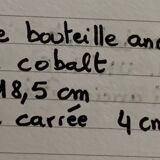 e bouteille an
cobalt
18,5 cm
carrée 4 cm